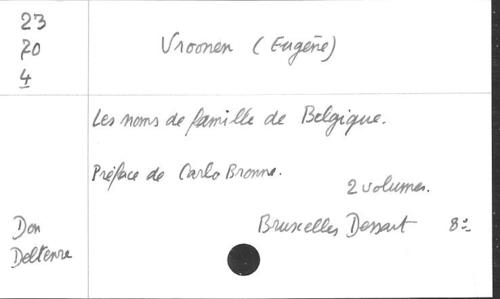 23
70
4
Vroonen (Eugène)
Les noms de famille de Belgique.
Préface de Carlo Bronne.
2 volumes.
Bruxelles Dessart 8º
Don
Deltenre